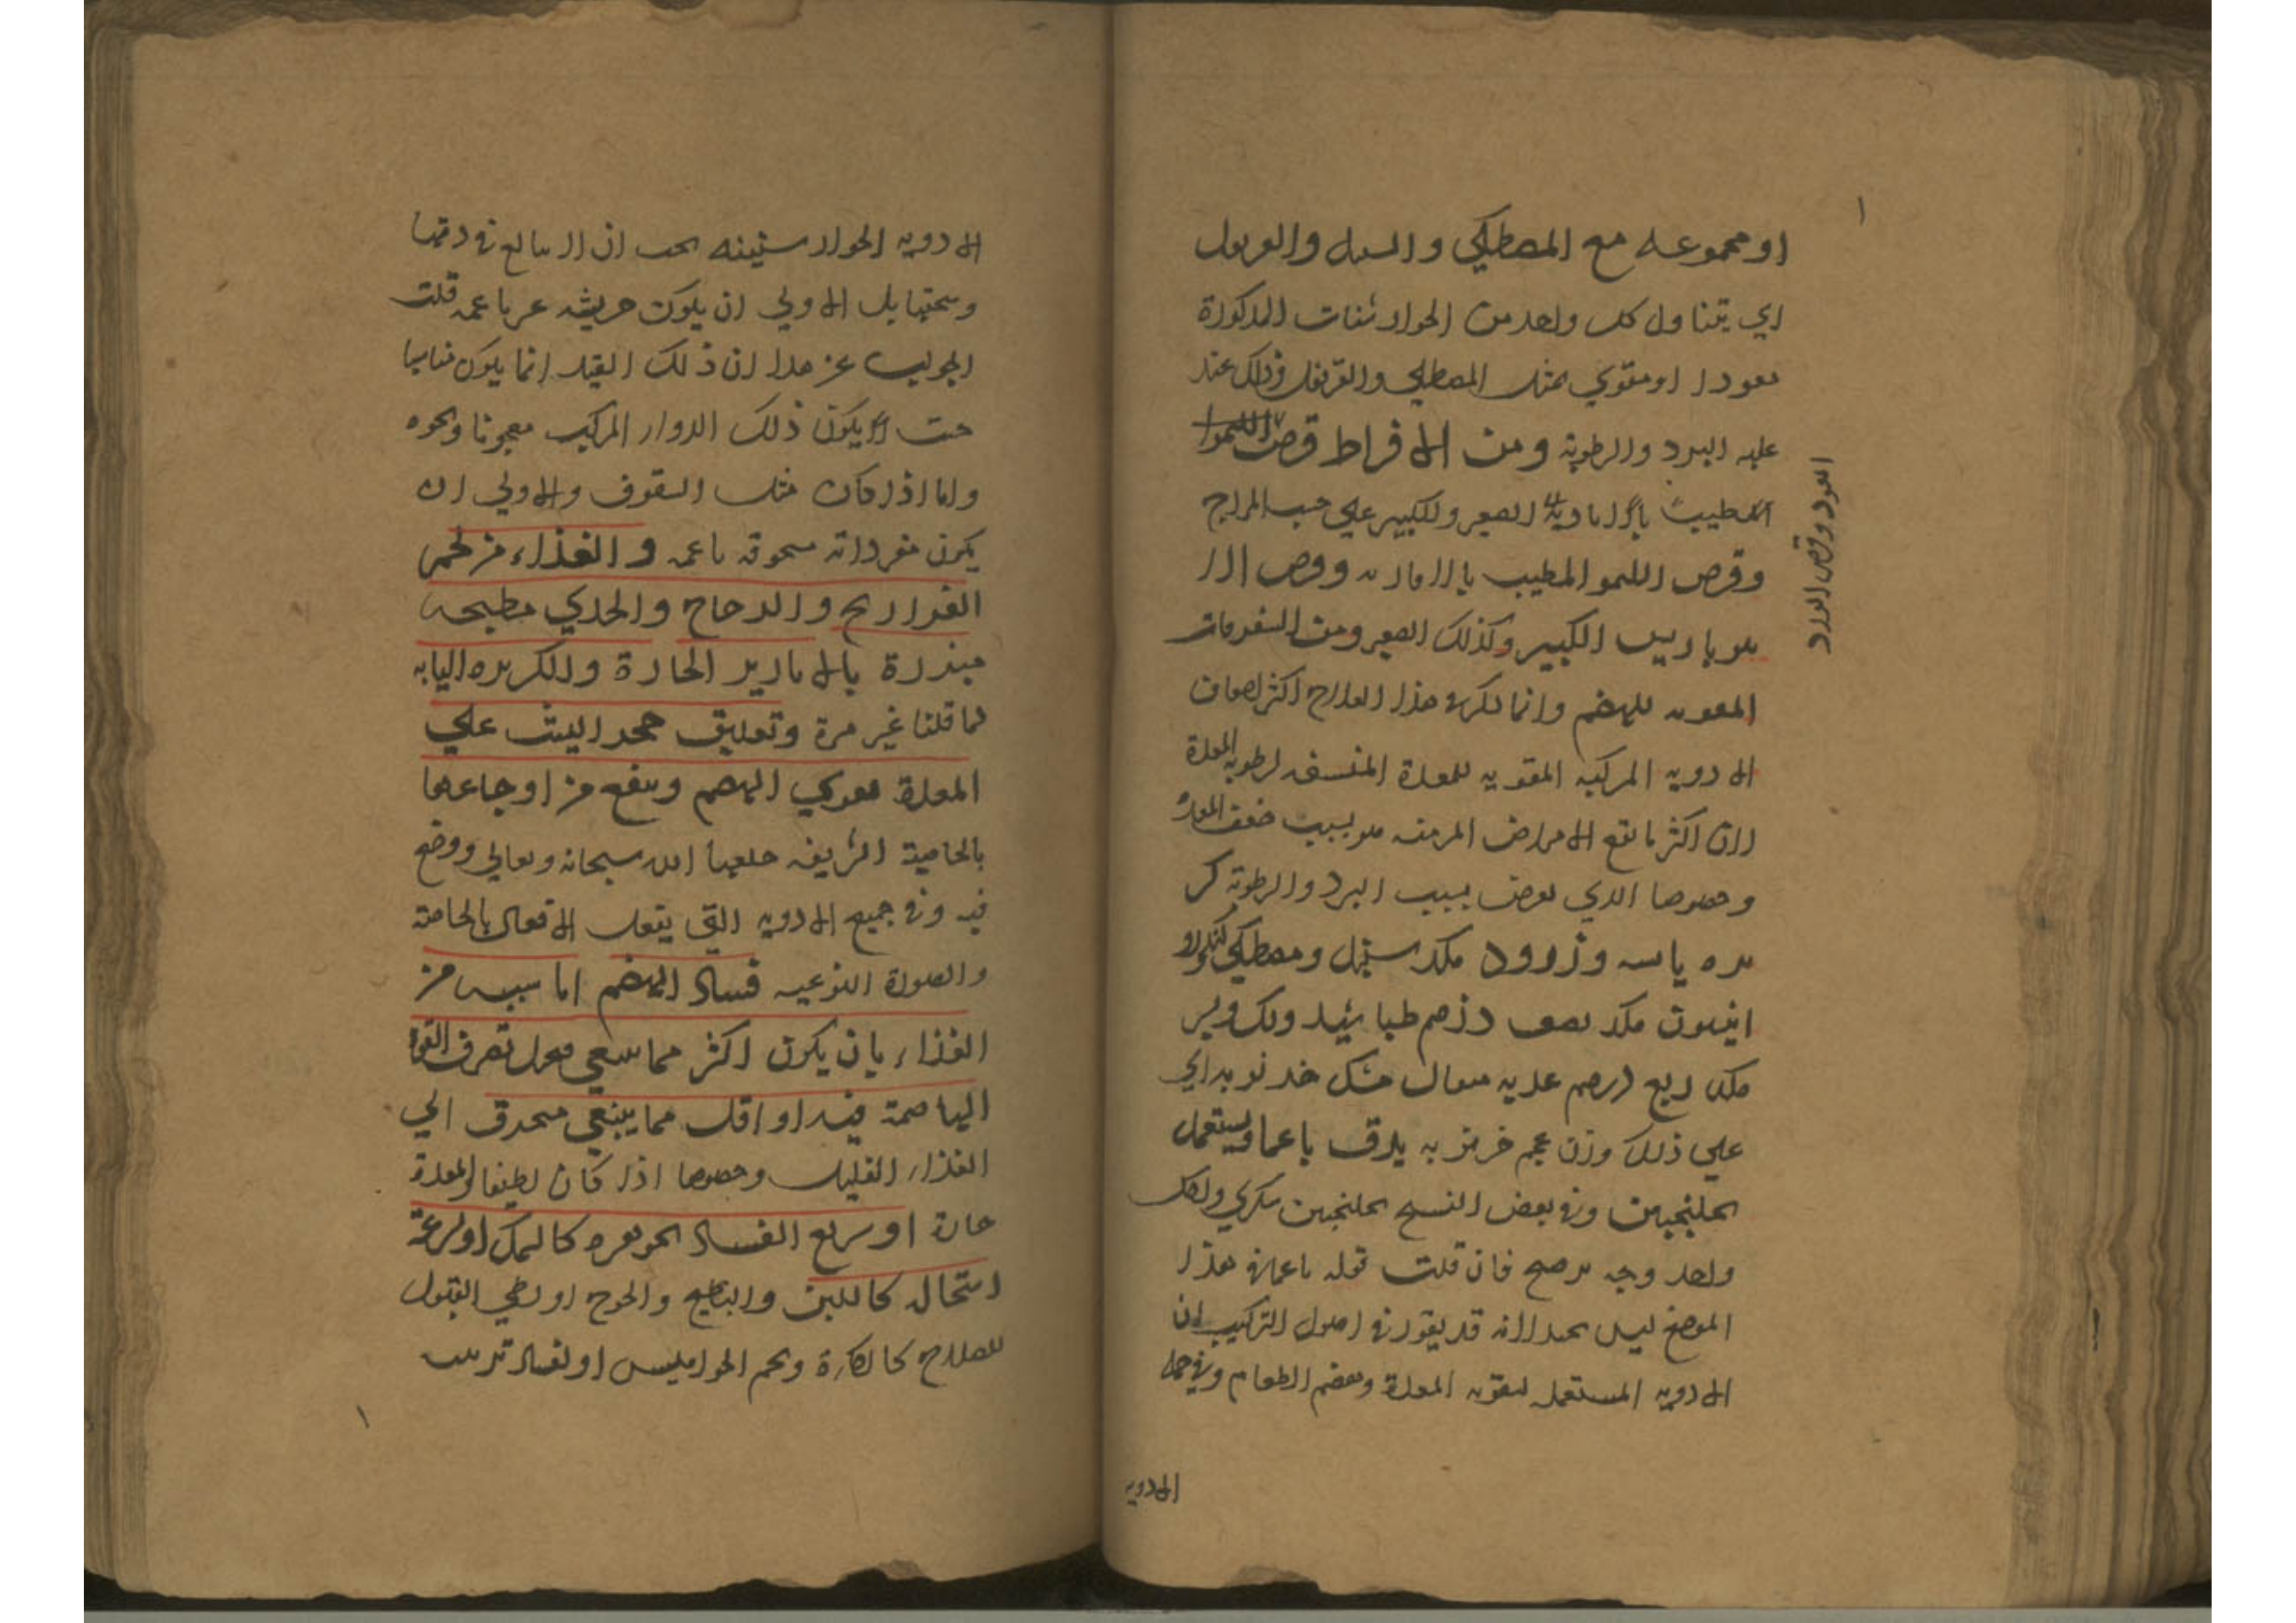 او مجموعه مع المصطكي والسنبل والقرنفل
اي يتناول كل واحد من الجوارشنات المذكورة
مفردا او مقوي بمثل المصطكي والقرنفل وذلك عند
غلبه البرد والرطوبة ومن الاقراط قرص
المطيب بالافاويه الصغير والكبير علي حسب المزاج
وقرص الليمو المطيب بالافاويه وقرص الا
مبرباريس الكبير وكذلك الصغير ومن السفوفات
المقويه للهضم وانما ذكر في هذا العلاج اكثر اصناف
الادويه المركبه المقويه للمعدة المنشفه لرطوبه المعدة
لان اكثر ما تقع الامراض المزمنه هو بسبب ضعف المعدة
وخصوصا الذي يعرض بسبب البرد والرطوبة كز
بره يابسه وزرورد مكد سنبل ومصطكي
انيسون مكد نصف درهم طباشير ولك
مكد ربع درهم
علي ذلك وزن يدق ناعما ويستعمل
بجلنجبين وفي بعض النسخ بجلنجبين سكري ولكل
واحد وجه صح فان قلت قوله ناعما في هذا
الموضع ليس بجيد لانه قد تقرر في اصول التركيب ان
الادويه المستعمله لتقويه المعدة وهضم الطعام وفي جمله
العود وقرص الورد
الادويه
الادويه الجوارشنيه يجب ان لا يبالغ في دقها
وسحقها بل الاولي ان يكون جريشه غير ناعمه قلت
الجواب عن هذا ان ذلك القيد انما يكون مناسبا
حيث لا يكون ذلك الدواء المركب معجونا ونحوه
واما اذا كان مثل السفوف والاولي ان
يكون مفرداته مسحوقه ناعمه والغذاء من لحم
الفراريج والدجاج والجدي مطبخه
مبزرة بالابازير الحارة والكزبره اليابسه
لما قلنا غير مرة وتعليق حجر اليشب علي
المعدة يقوي الهضم وينفع من اوجاعها
بالخاصية الشريفه خلقها الله سبحانه وتعالي ووضع
فيه وفي جميع الادويه التي يفعل الافعال بالخاصة
والصورة النوعيه فساد الهضم اما سببه من
الغذاء بان يكون اكثر مما ينبغي فعل تصرف القوا
الهاضمة فيه او اقل مما ينبغي فيحترق الي
الغذاء القليل وخصوصا اذا كان لطيفا والمعدة
حارة او سريع الفساد بجوهره كالسمك او لسرعة
استحاله كاللبن والبطيخ والخوخ او بطي القبول
للصلاح كالكماة ولحم الجواميس او لفساد ترتيب